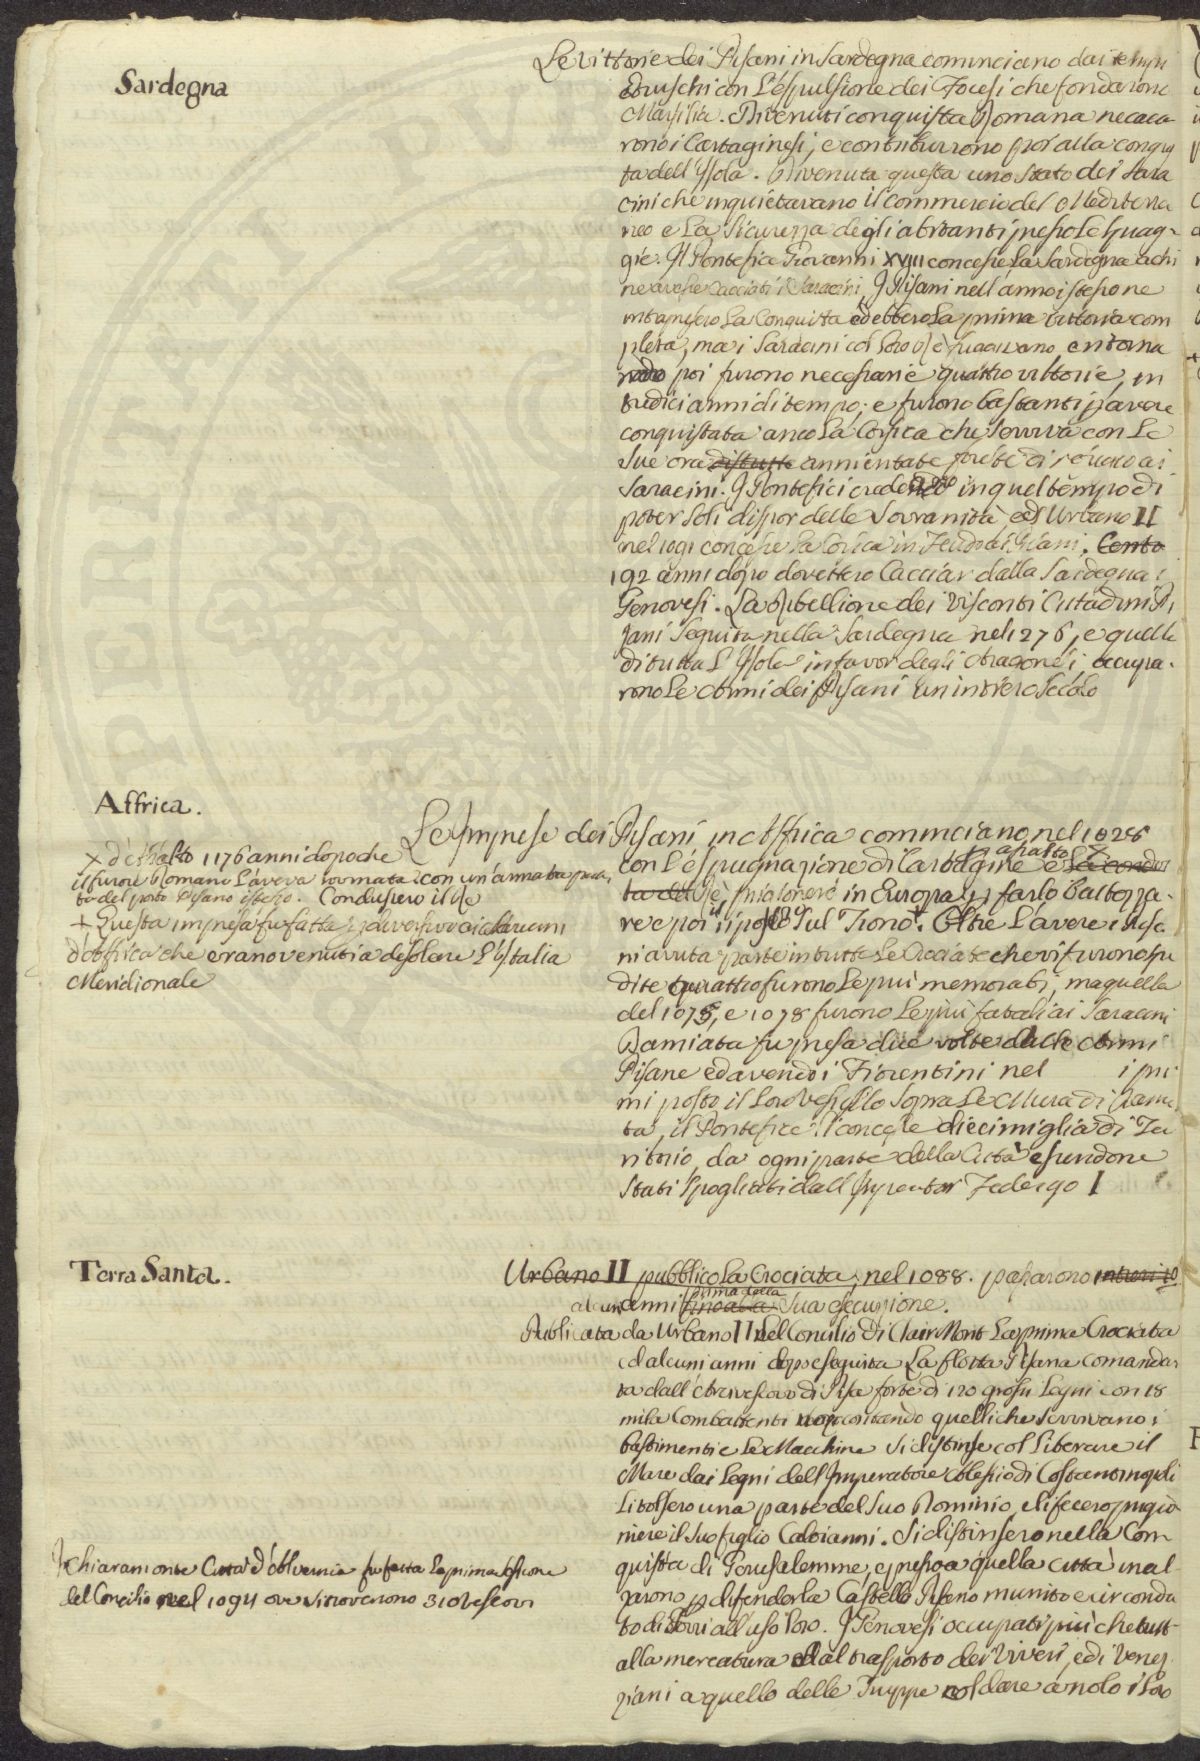 Sardegna
Le vittorie dei Pisani in Sardegna cominciano dai tempi
etruschi con l'espulsione dei Focesi che fondarono
Marsilia. Divenuti conquista Romana ne caca-
rono i Cartaginesi, e contriburrono poi alla conqui
ta dell'Isola. Divenuta questa uno stato dei Sara
cini che inquietavano il commercio del Mediterra
neo e la sicurezza degli abitanti presso le spiag-
gie. Il Pontefice Giovanni XVIII concesse la Sardegna a chi
ne avesse cacciati i Saracini, I Pisani nell'anno istesso ne
intrapresero la conquista ed ebbero la prima vittoria com
pleta, ma i Saracini col loro Rè fuggivano, e ritorna
ndo poi furono necessarie quattro vittorie, in
tredici anni di tempo; e furono bastanti p avere
conquistata anco la Corsica che serviva con le
sue ora distrutte annientate forze di ai
Saracini. I Pontefici credendo in quel tempo di
poter soli dispor delle Sovranità, ed Urbano II
nel 1091 concesse la Corsica in Feudo ai Pisani. Cento
192 anni dopo dovettero cacciar dalla Sardegna i
Genovesi. La ribellione dei Visconti Cittadini Pi
sani seguita nella Sardegna nel 1276, e quella
di tutta l'Isola in favor degli Aragonesi, occupa-
rono le Armi dei Pisani un intiero secolo
Affrica.
Le Imprese dei Pisani in Affrica cominciano nel 1028
con l'espugnazione di Cartagine p assalto X e la condot
ta del Rè, prigioniero in Europa p farlo battezza-
re e poi il riposero sul Trono. Oltre l'avere i Pisa
ni avuta parte in tutte le Crociate che vi furono spe
dite quattro furono le più memorabi, ma quella
del 1075, e 1078 furono le più fatali ai Saracini
Damiata fu presa due volte dalle Armi
Pisane ed avendo i Fiorentini nel i pri
mi posto il loro Vessillo sopra le Mura di Dama
ta, il Pontefice li concesse dieci miglia di Ter
ritorio, da ogni parte della Città essendone
stati spogliati dall'Imperator Federigo I
X d'assalto 1176 anni dopo che
il furore Romano l'aveva rovinata con un'armata parti
ta dal porto Pisano istesso. Condussero il Re
+ Questa impresa fu fatta p diversivo ai Saracini
d'Affrica che erano venuti a desolare l'Italia
Meridionale
Terra Santa.
Urbano II pubblicò la Crociata, nel 1088. passarono intieri 10
alcuni anni fino alla prima della sua esecuzione.
Publicata da Urbano II nel Concilio di Clair Mont la prima Crociata
ed alcuni anni dopo eseguita la flotta Pisana comanda-
ta dall'Arcivescovo di Pisa forte di 120 grossi Legni con 18
mila Combattenti non contando quelli che servivano i
bastimenti e le Macchine si distinse col liberare il
Mare dai Legni dell'Imperatore Alessio di Costantinopoli
li tolsero una parte del suo Dominio, e li fecero prigio
niere il suo figlio Caloianni. Si distinsero nella Con
quista di Gerusalemme, e presso a quella città inal-
zarono p difenderla Castello Pisano munito e circonda
to di Torri all'uso loro. I Genovesi occupati più che tutt
alla mercatura ed al trasporto dei Viveri, ed i Vene
ziani a quello delle Truppe col dare a nolo i loro
In Chiaramonte Città d'Alvernia fu fatta la prima sessione
del Concilio nel 1094 ove si trovarono 310 Vescovi